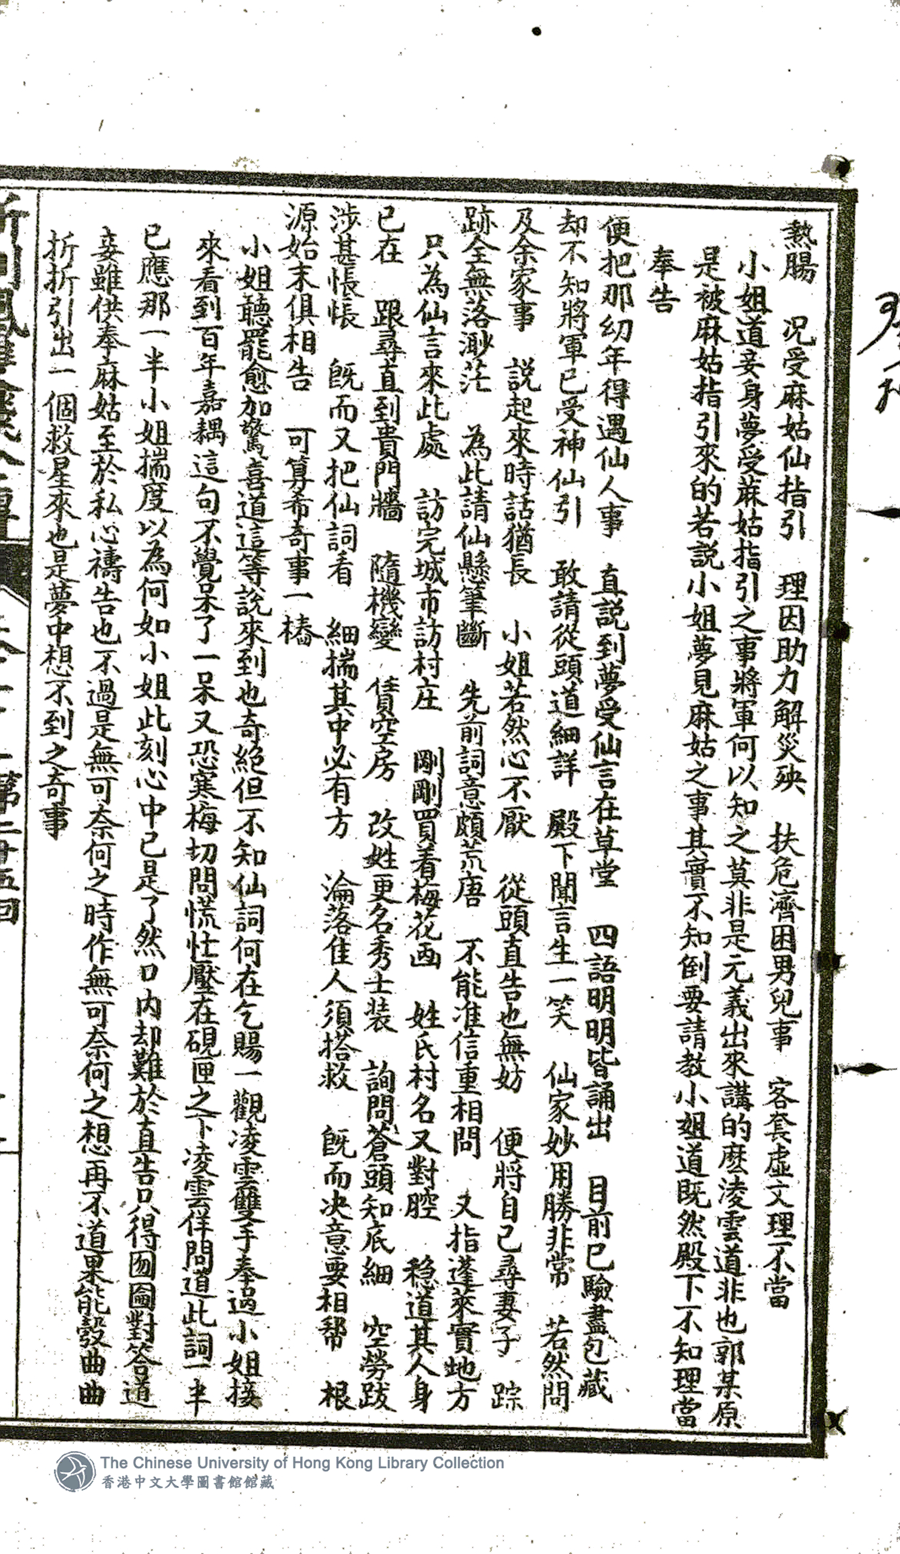 熱腸　况受麻姑仙指引　理因助力解災殃　扶危濟困男兒事　客套虛文理不當
小姐道妾身夢受蔴姑指引之事將軍何以知之莫非是元義出來講的麽淩雲道非也郭某原
是被麻姑指引來的若説小姐夢見麻姑之事其實不知倒要請教小姐道既然殿下不知理當
奉告
便把那幼年得遇仙人事　直説到夢受仙言在草堂　四語明明皆誦出　目前已驗盡包藏
却不知將軍已受神仙引　敢請從頭道細詳　殿下聞言生一笑　仙家妙用勝非常　若然問
及余家事　説起來時話猶長　小姐若然心不厭　從頭直告也無妨　便將自己尋妻子　踪
跡全無落渺茫　為此請仙懸筆斷　先前詞意頗荒唐　不能准信重相問　又指蓬萊實地方
只為仙言來此處　訪完城市訪村庄　剛剛買着梅花画　姓氏村名又對腔　稳道其人身
已在　跟尋直到貴門牆　隨機變　賃空房　改姓更名秀士装　詢問蒼頭知底細　空勞跋
涉甚悵悵　旣而又把仙詞看　細揣其中必有方　淪落佳人須搭救　旣而决意要相帮　根
源始末俱相告　可算希奇事一樁
小姐聽罷愈加驚喜道這等說來到也奇絕但不知仙詞何在乞賜一觀淩雲雙手奉過小姐接
來看到百年嘉耦這句不覺呆了一呆又恐寒梅切問慌忙壓在硯匣之下淩雲佯問道此詞一半
已應那一半小姐揣度以為何如小姐此刻心中已是了然口内却難於直告只得囫圇對答道
妾雖供奉麻姑至於私心禱告也不過是無可奈何之時作無可奈何之想再不道果能彀曲曲
折折引出一個救星來也是夢中想不到之奇事
第二十五回
The Chinese University of Hong Kong Library Collection
香港中文大學圖書館館藏